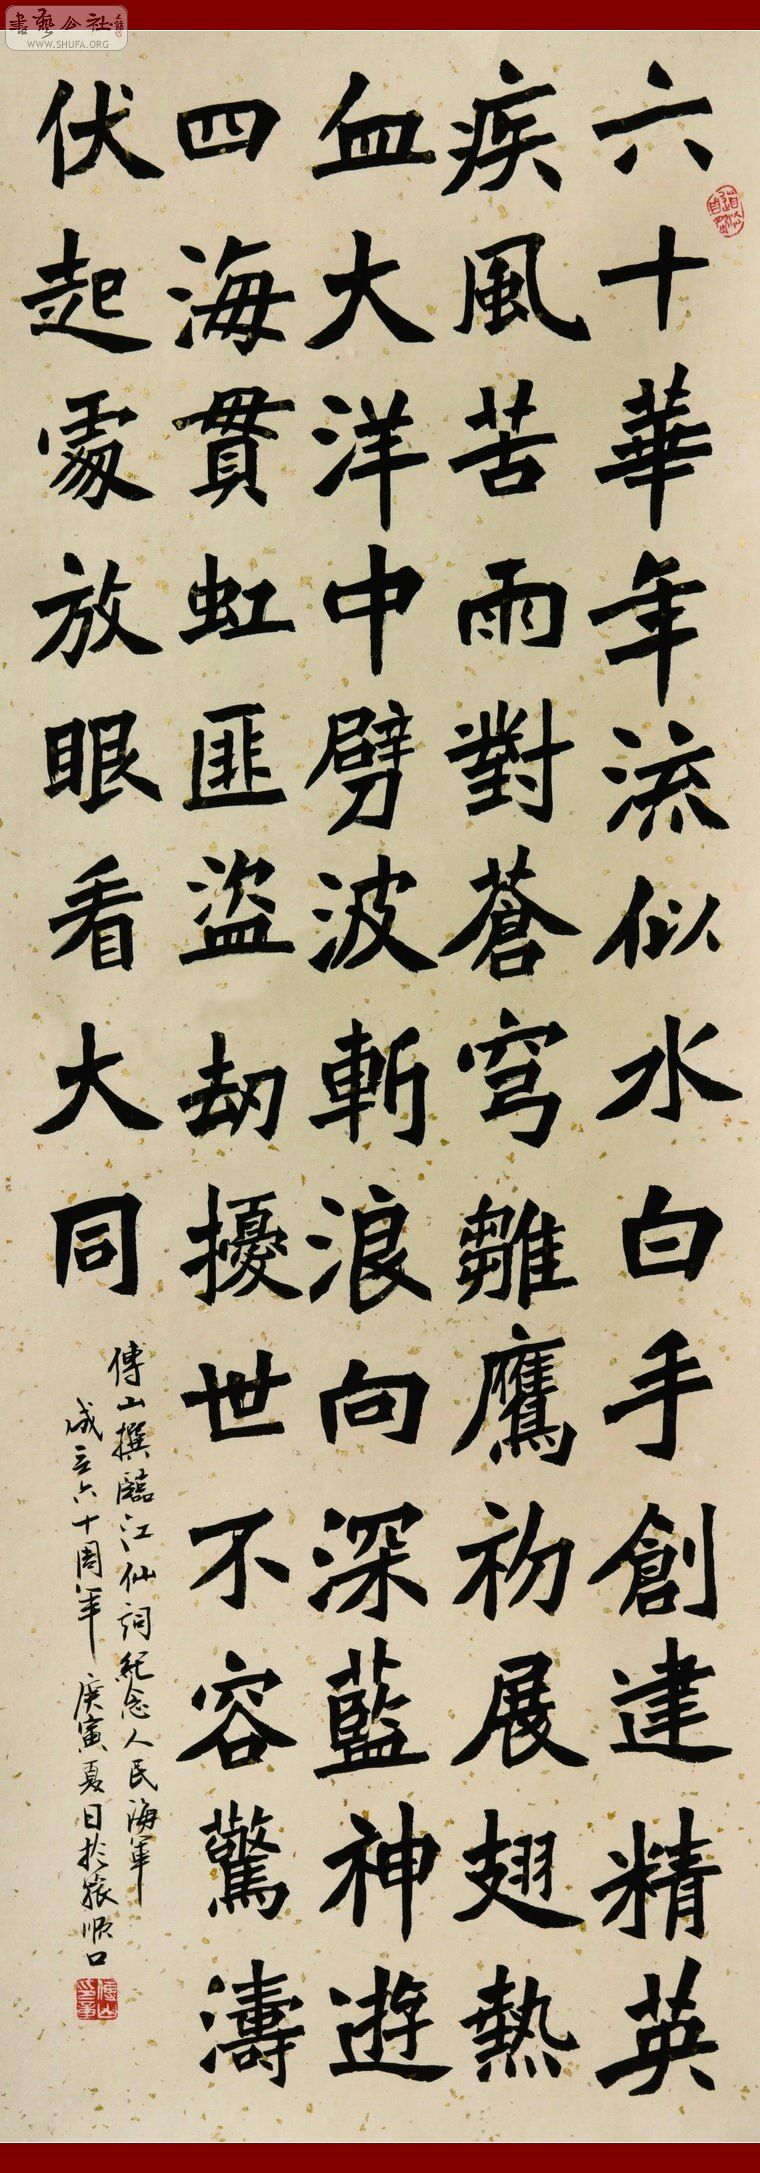 書藝公社
WWW.SHUFA.ORG
六十華年流似水白手創建精英
疾風苦雨對蒼穹雛鷹初展翅熱
血大洋中劈波斬浪向深藍神遊
四海貫虹匪盜劫擾世不容驚濤
伏起處放眼看大同
傅山撰臨江仙詞紀念人民海軍
成立六十周年 庚寅夏日於旅順口
道法自然